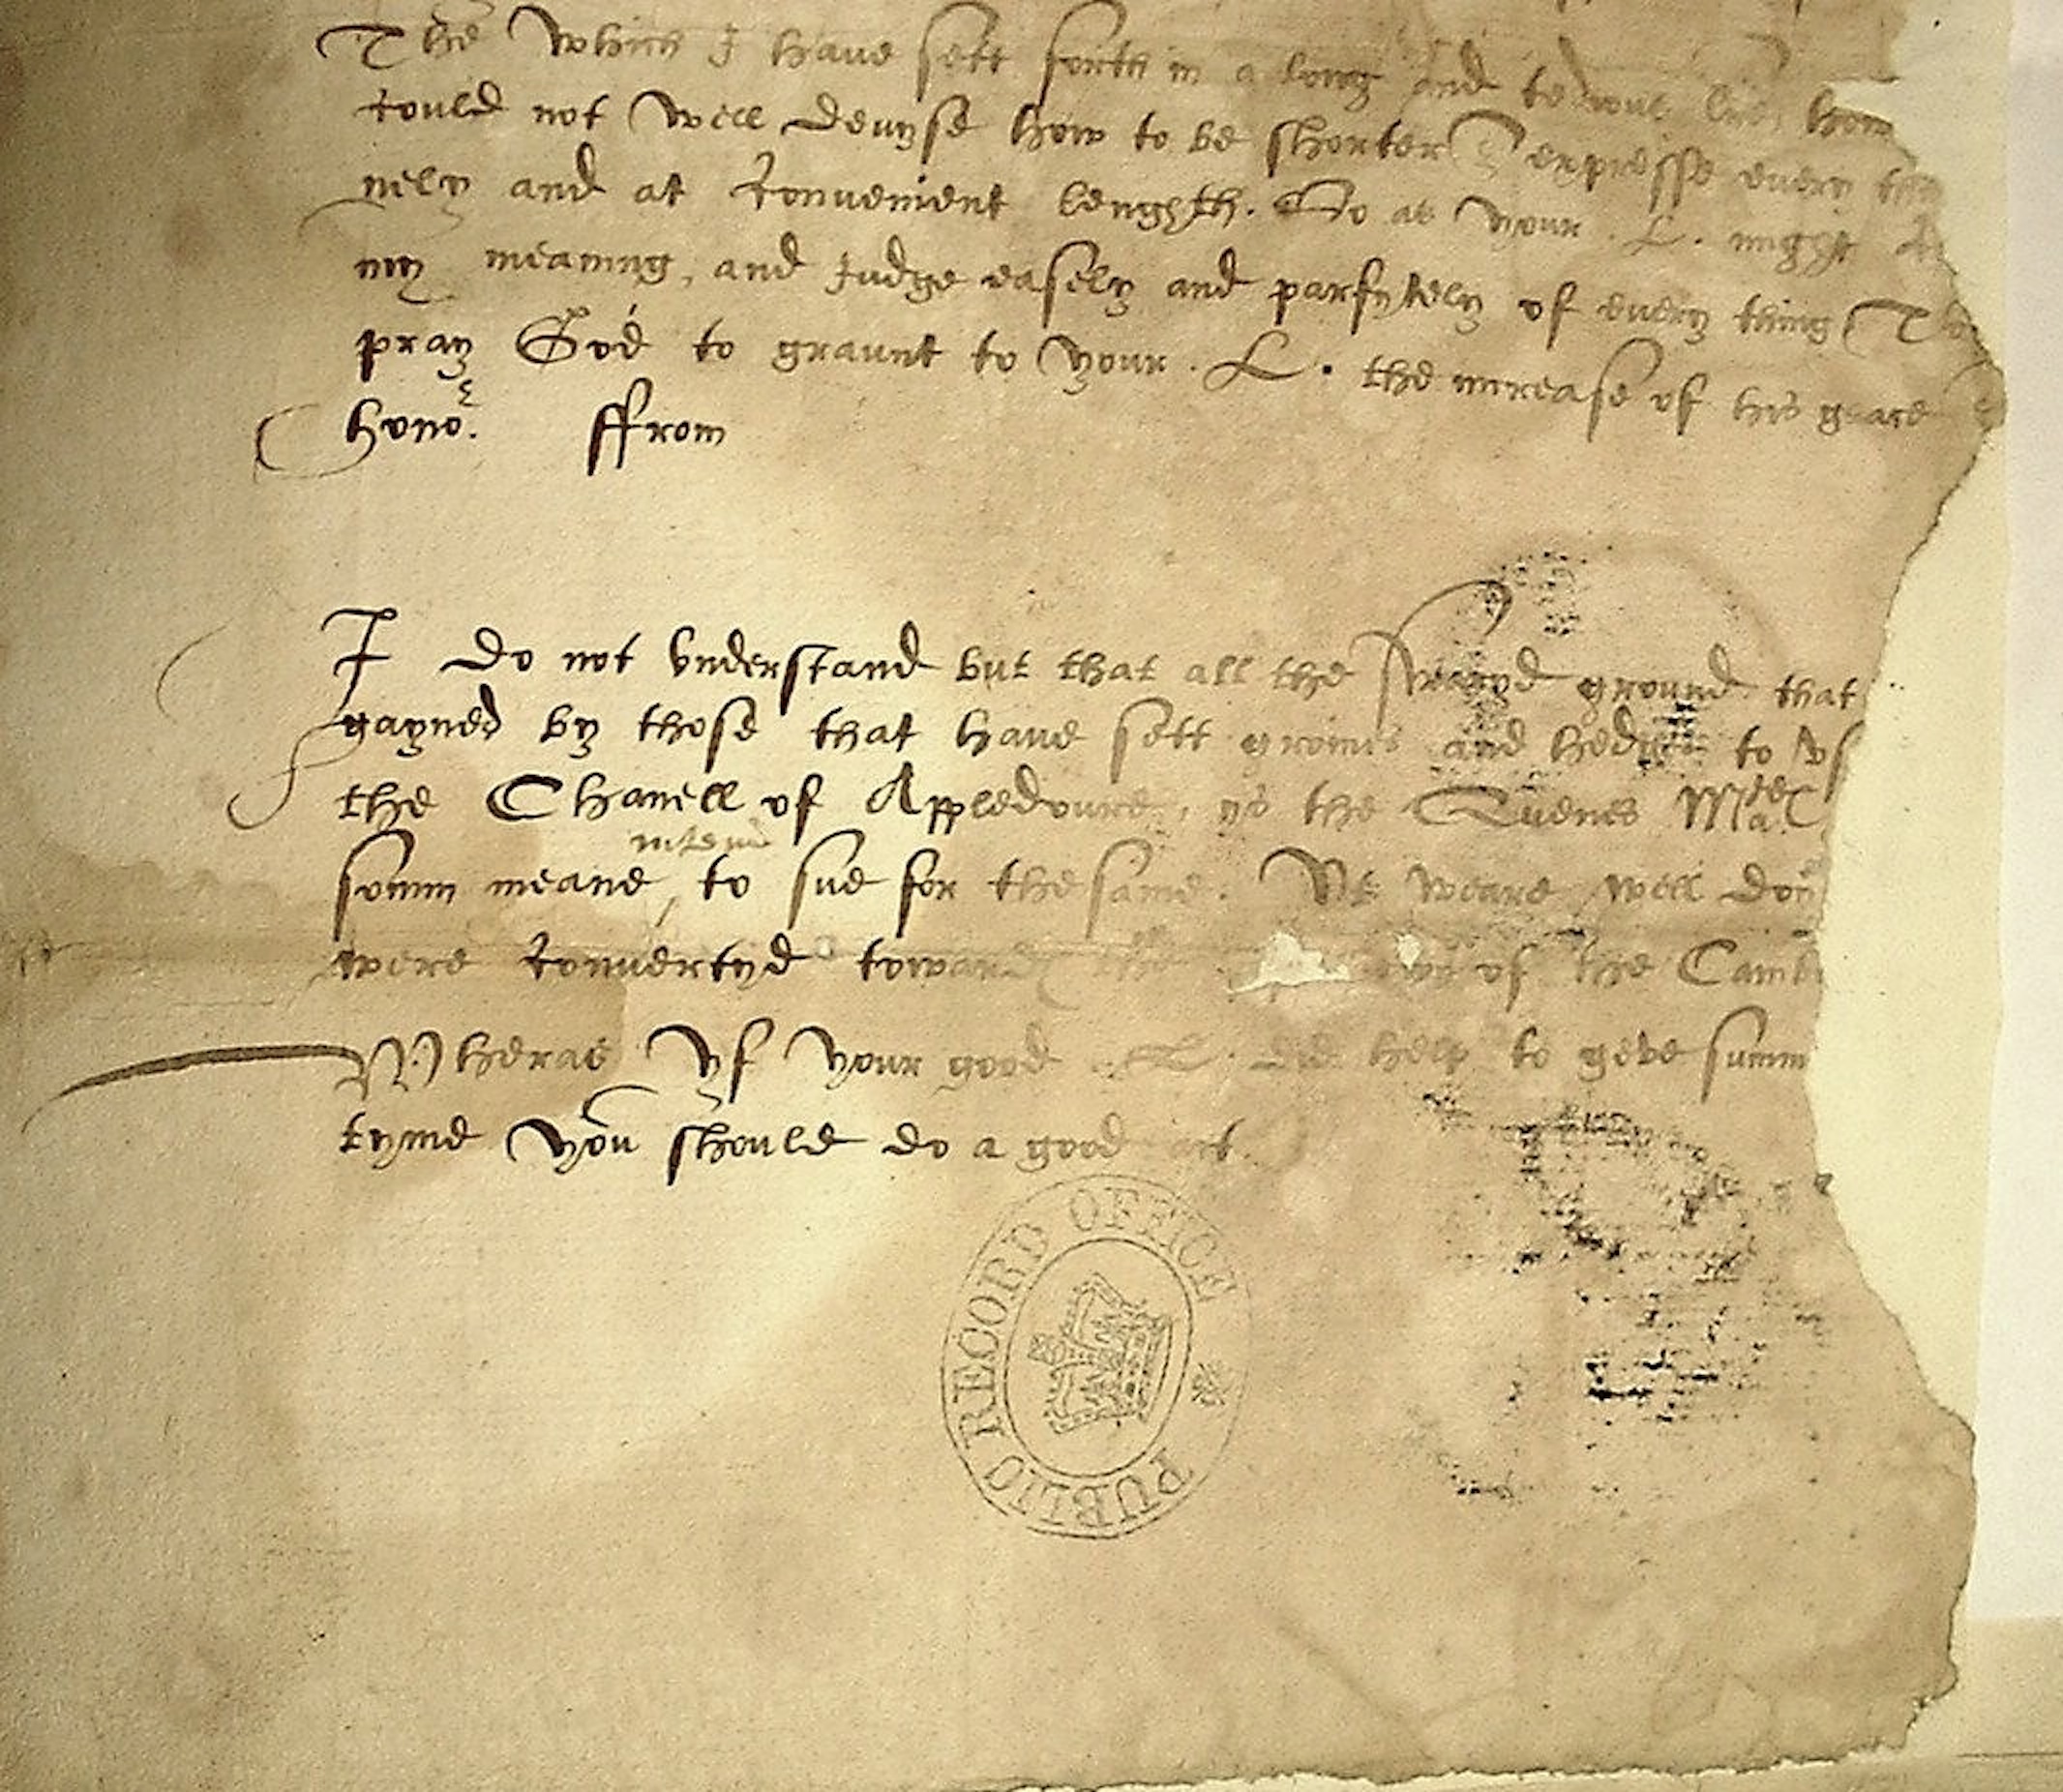 The which I have sett forth in a long and
could not well devyse how to be shorter expresse every
nely and at convenient lenghth. So as your .L. might
my meaning, and Judge easely and parfytely of every thing
pray God to graunt to your .L. the increase of his grace
honor. ffrom
I do not vnderstand but that all the ground that
gayned by those that have sett groines and to
the Chanell of Appledoure, ys the Quenes Ma.ties
somm meane to sue for the same. Yt weare well
were convertyd toward of the
Wheras yf your good .L. did help to geve summ
tyme you should do a good act.
PUBLIC RECORD OFFICE